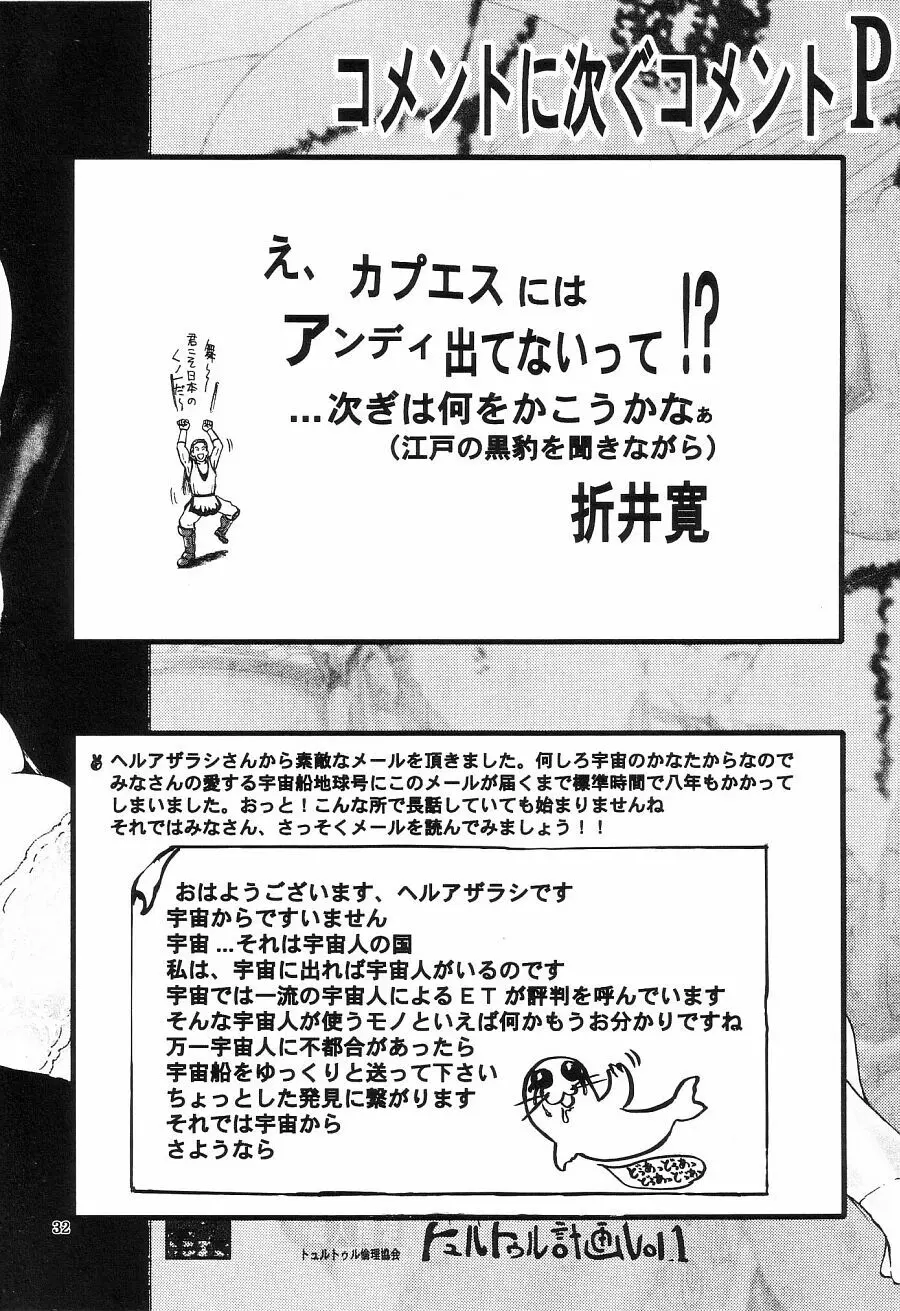 コメントに次ぐコメントP
え、カプエスには
アンディ出てないって!?
…次ぎは何をかこうかなぁ
（江戸の黒豹を聞きながら）
折井寛
舞〜〜
君こそ日本の
くノ一だ〜
ヘルアザラシさんから素敵なメールを頂きました。何しろ宇宙のかなたからなので
みなさんの愛する宇宙船地球号にこのメールが届くまで標準時間で八年もかかって
しまいました。おっと！こんな所で長話していても始まりませんね
それではみなさん、さっそくメールを読んでみましょう！！
おはようございます、ヘルアザラシです
宇宙からですいません
宇宙…それは宇宙人の国
私は、宇宙に出れば宇宙人がいるのです
宇宙では一流の宇宙人によるＥＴが評判を呼んでいます
そんな宇宙人が使うモノといえば何かもうお分かりですね
万一宇宙人に不都合があったら
宇宙船をゆっくりと送って下さい
ちょっとした発見に繋がります
それでは宇宙から
さようなら
どぅあっどぅあっ
どぅあっどぅあっ
32
トュルトゥル倫理協会
トュルトゥル計画Vol1